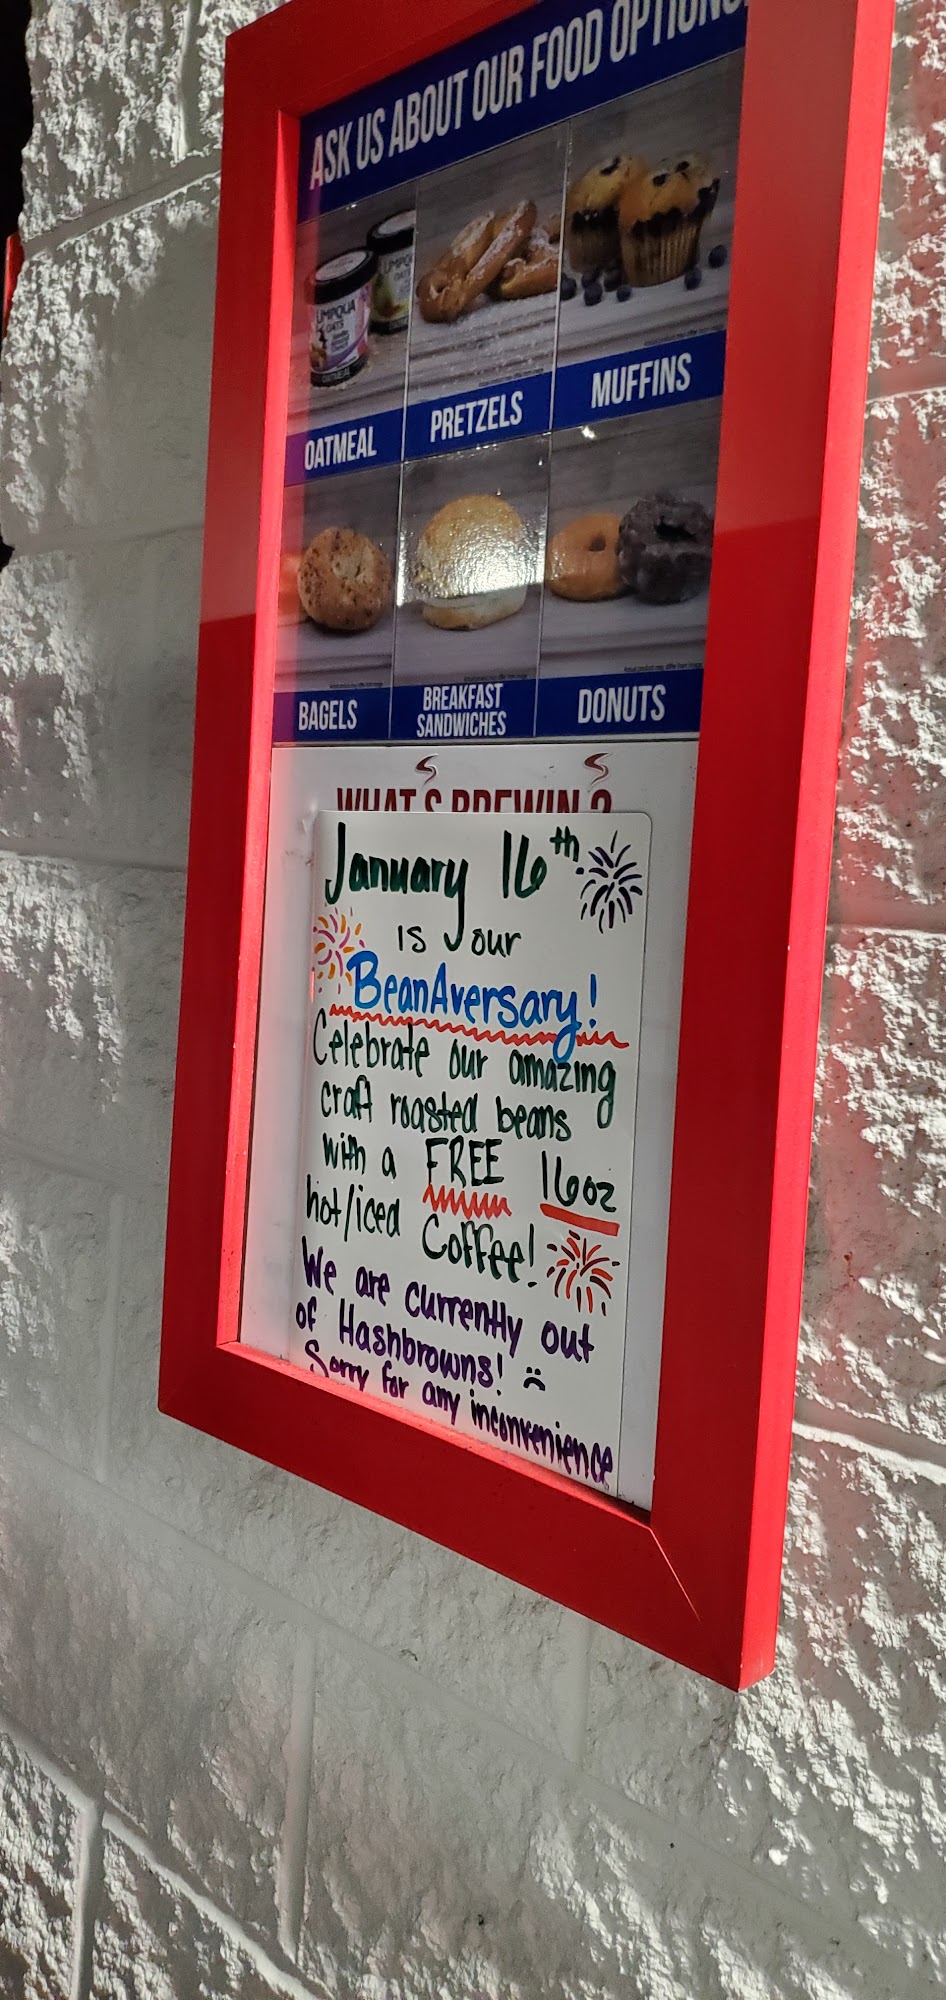 ASK US ABOUT OUR FOOD OPTIONS
UMPQUA
OATS
OATMEAL
PRETZELS
MUFFINS
BAGELS
BREAKFAST
SANDWICHES
DONUTS
WHAT'S BREWIN'?
January 16th
is our
BeanAversary!
Celebrate our amazing
craft roasted beans
with a FREE 16oz
hot/iced Coffee!
We are currently out
of Hashbrowns! :(
Sorry for any inconvenience